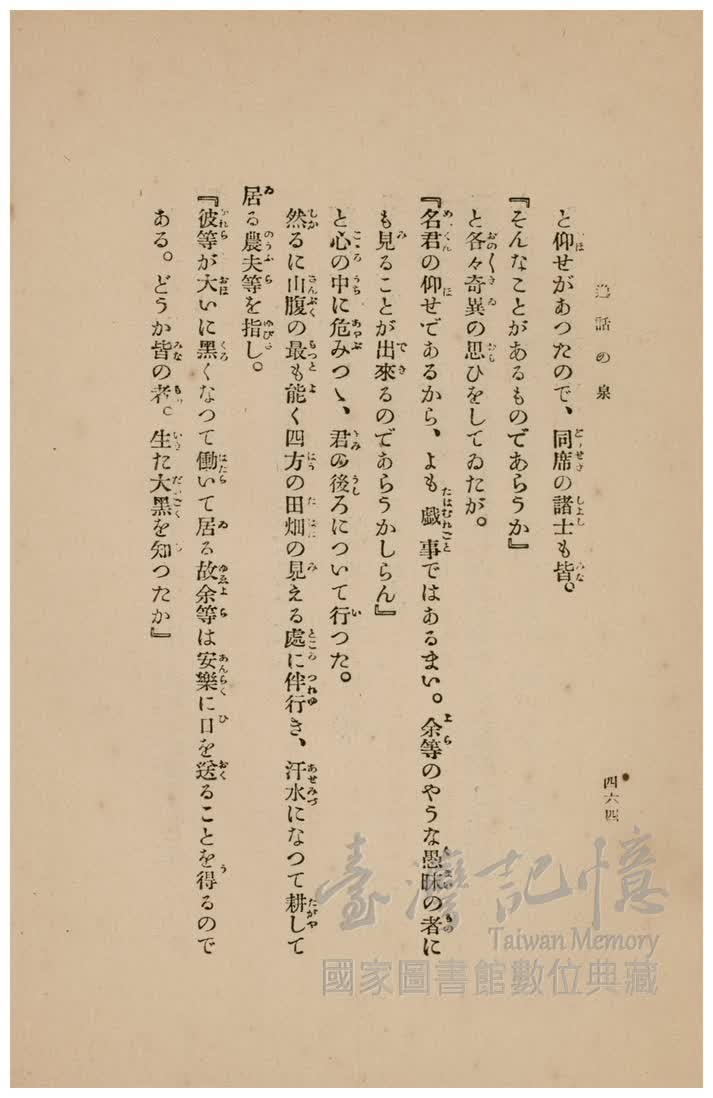 話の泉
四六四
と仰せがあつたので、同席の諸士も皆。
『そんなことがあるものであらうか』
と各々奇異の思ひをしてゐたが。
『名君の仰せであるから、よも戯事ではあるまい。余等のやうな愚昧の者に
も見ることが出來るのであらうかしらん』
と心の中に危みつゝ、君の後ろについて行つた。
然るに山腹の最も能く四方の田畑の見える處に伴行き、汗水になつて耕して
居る農夫等を指し。
『彼等が大いに黑くなつて働いて居る故余等は安樂に日を送ることを得るので
ある。どうか皆の者。生た大黑を知つたか』
臺灣記憶
Taiwan Memory
國家圖書館數位典藏